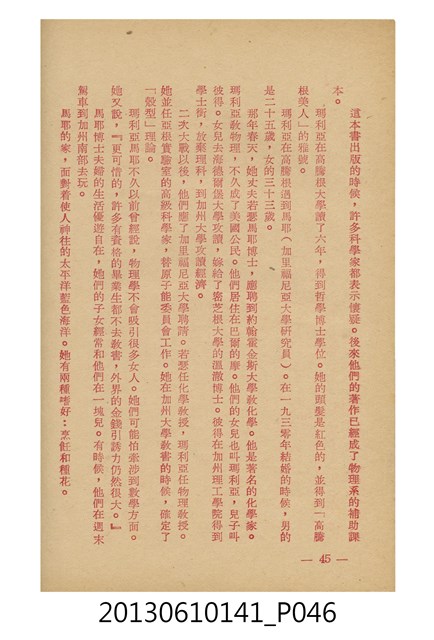 這本書出版的時候，許多科學家都表示懷疑。後來他們的著作已經成了物理系的補助課
本。
瑪利亞在高騰根大學讀了六年，得到哲學博士學位。她的頭髮是紅色的，並得到「高騰
根美人」的雅號。
瑪利亞在高騰根遇到馬耶（加里福尼亞大學研究員）。在一九三零年結婚的時候，男的
是二十五歲，女的三十三歲。
那年春天，她丈夫若瑟馬耶博士，應聘到約翰霍金斯大學教化學。他是著名的化學家。
瑪利亞教物理，不久成了美國公民。他們居住在巴爾的摩。他們的女兒也叫瑪利亞，兒子叫
彼得。女兒去海德爾堡大學攻讀，嫁給了密芝根大學的溫澈博士。彼得在加州理工學院得到
學士銜，放棄理科，到加州大學攻讀經濟。
二次大戰以後，他們應了加里福尼亞大學聘請。若瑟任化學教授，瑪利亞任物理教授。
她並任亞根實驗室的高級科學家，替原子能委員會工作。她在加州大學教書的時候，確定了
「殼型」理論。
瑪利亞馬耶不久以前曾經說，物理學不會吸引很多女人。她們可能怕牽涉到數學方面。
她又說，『更可惜的，許多有資格的畢業生都不去教書，外界的金錢引誘力仍然很大。』
馬耶博士夫婦的生活優遊自在，她們的子女經常和他們在一塊兒。有時候，他們在週末
駕車到加州南部去玩。
馬耶的家，面對着使人神往的太平洋藍色海洋。她有兩種嗜好：烹飪和種花。
— 45 —
20130610141_P046